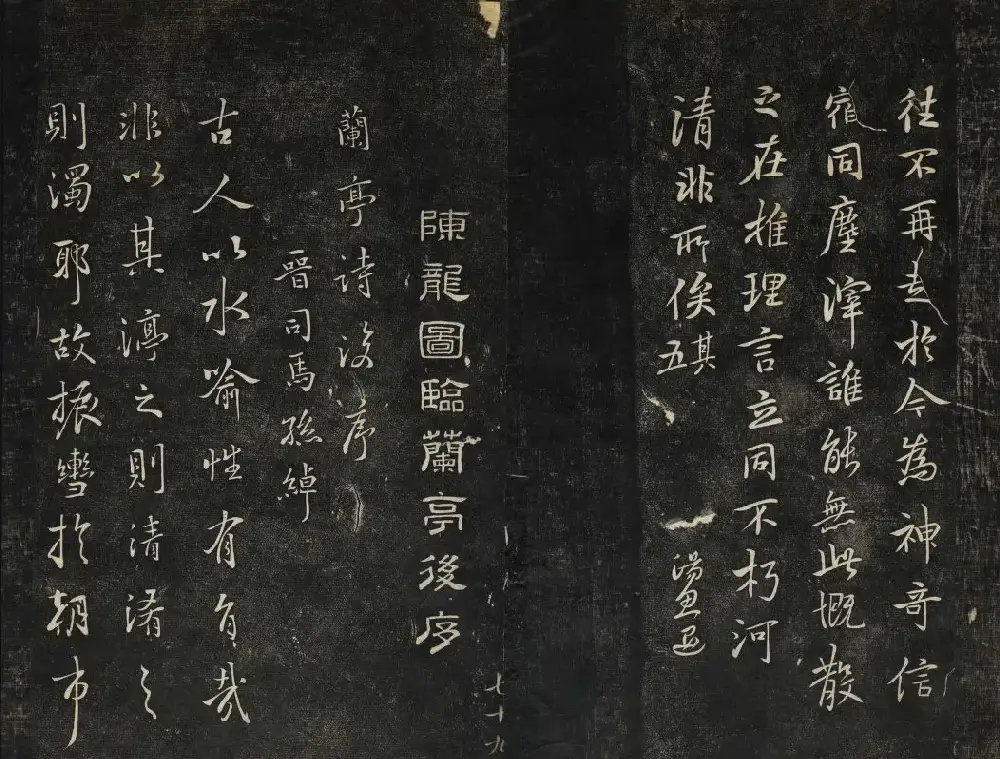 往不再起於今為神奇信
宿同塵滓誰能無此慨散
之在推理言立同不朽河
清非所俟其五
七十九
陳龍圖臨蘭亭後序
蘭亭詩後序
晉司馬孫綽
古人以水喻性有旨哉
非以其渟之則清淆之
則濁耶故振轡於朝市